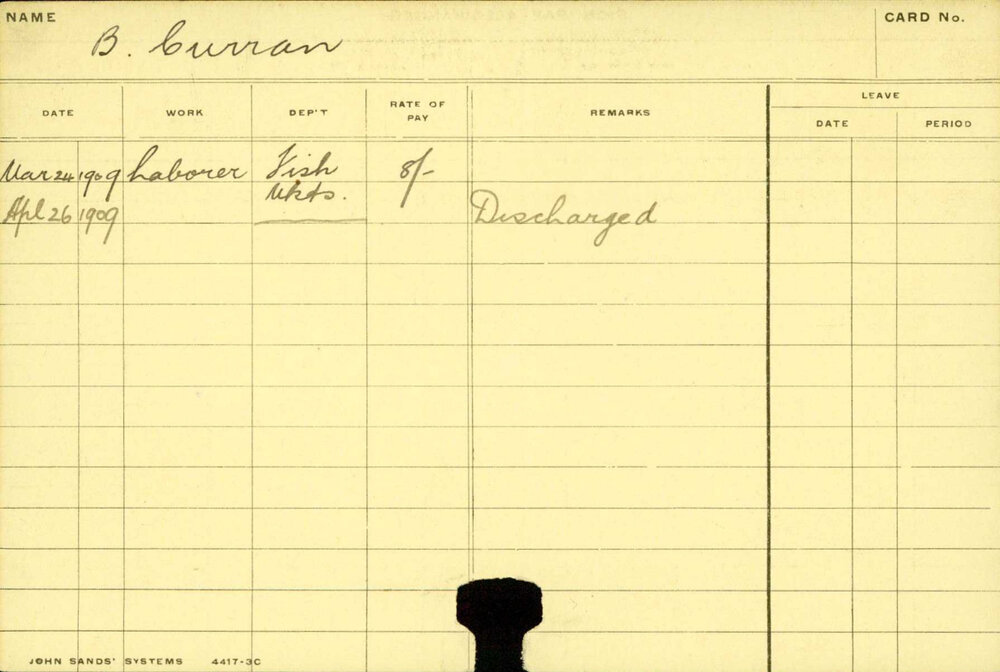 NAME
B. Curran
CARD No.
DATE WORK DEP'T RATE OF PAY REMARKS LEAVE
DATE PERIOD
Mar 24 1909 Laborer Fish Mkts. 8/-
Apl 26 1909 Discharged
JOHN SANDS' SYSTEMS 4417-3C